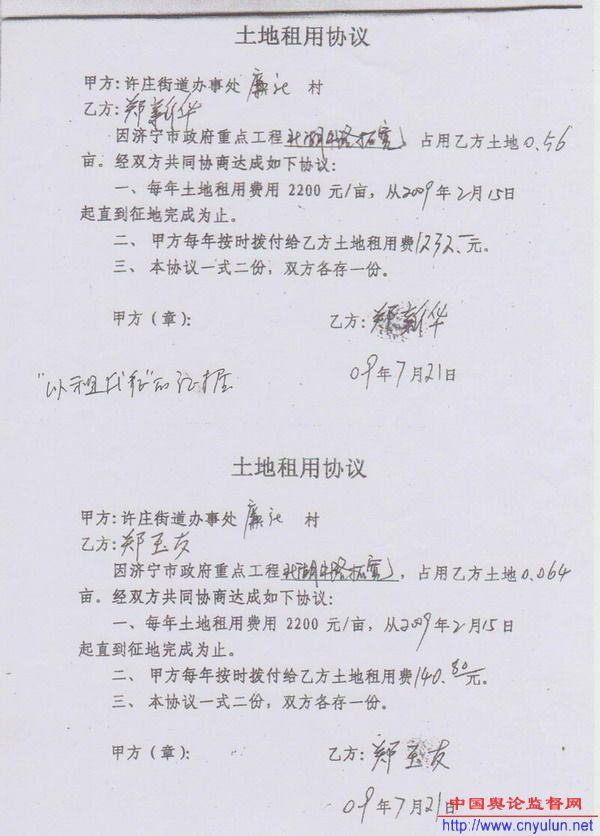 土地租用协议
甲方:许庄街道办事处廉屯 村
乙方:郑新华
因济宁市政府重点工程北湖路拓宽，占用乙方土地0.56
亩。经双方共同协商达成如下协议:
一、每年土地租用费用 2200 元/亩，从2009年2月15日
起直到征地完成为止。
二、甲方每年按时拨付给乙方土地租用费1232.一元。
三、本协议一式二份，双方各存一份。
甲方（章）: 乙方:郑新华
09年7月21日
"以租代征"的证据
土地租用协议
甲方:许庄街道办事处 村
乙方:郑玉友
因济宁市政府重点工程 拓宽，占用乙方土地0.064
亩。经双方共同协商达成如下协议:
一、每年土地租用费用 2200 元/亩，从2009年2月15日
起直到征地完成为止。
二、甲方每年按时拨付给乙方土地租用费140.80元。
三、本协议一式二份，双方各存一份。
甲方（章）: 乙方:郑玉友
09年7月21日
中国舆论监督网
http://www.cnyulun.net